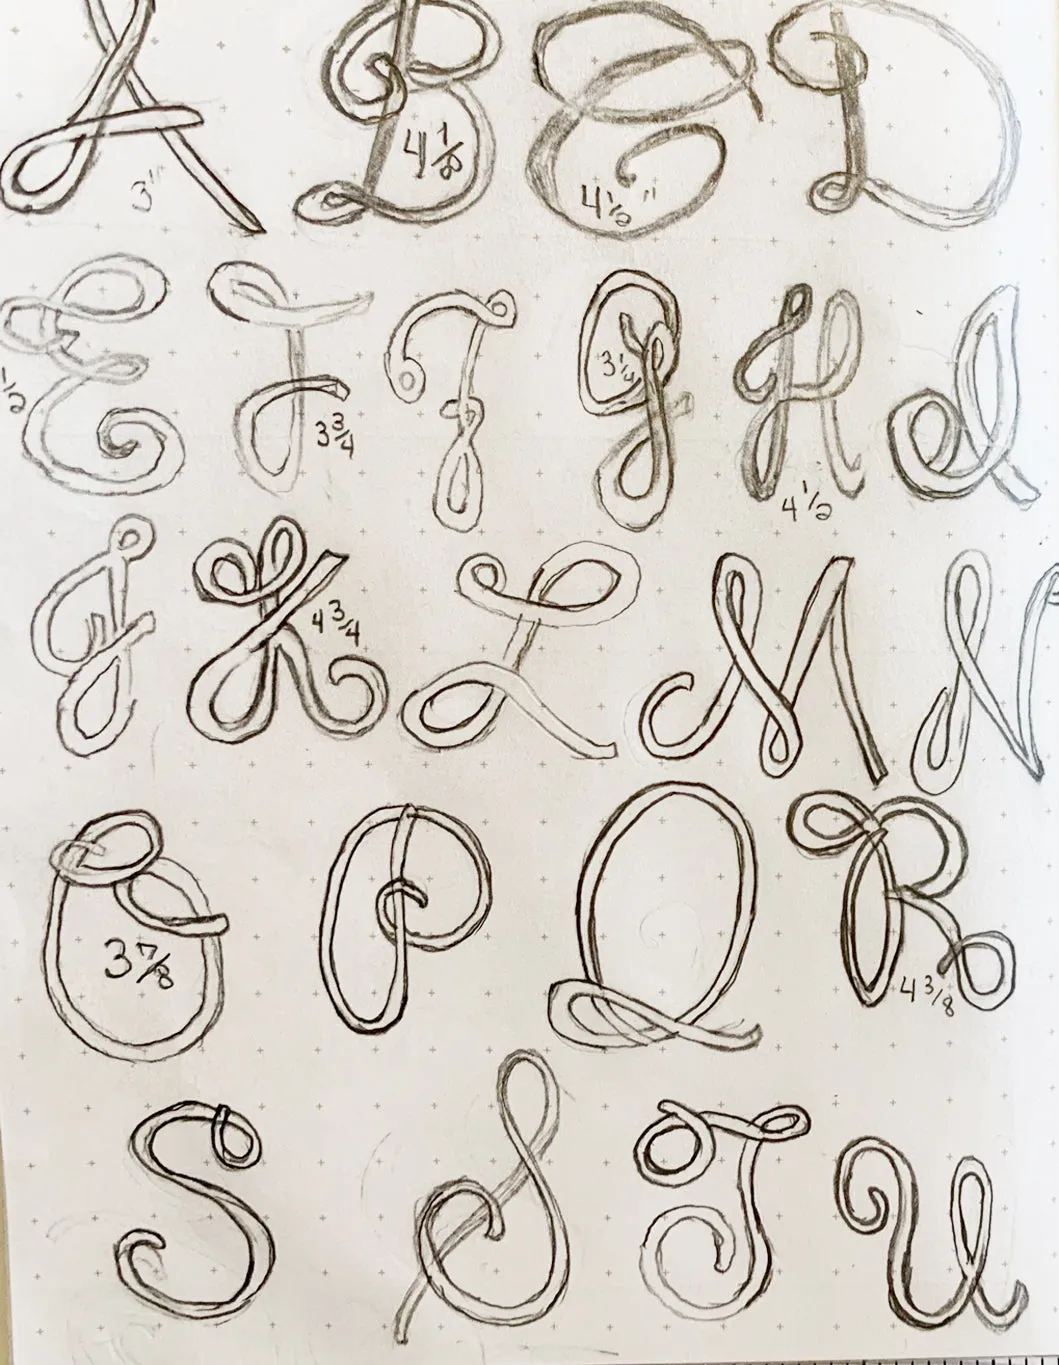 A B C D
3" 4 1/8 4 1/2"
E F F G H I
1/2 3 3/4 3 1/4 4 1/2
J K L M N
4 3/4
O P Q R
3 7/8 4 3/8
S S T U